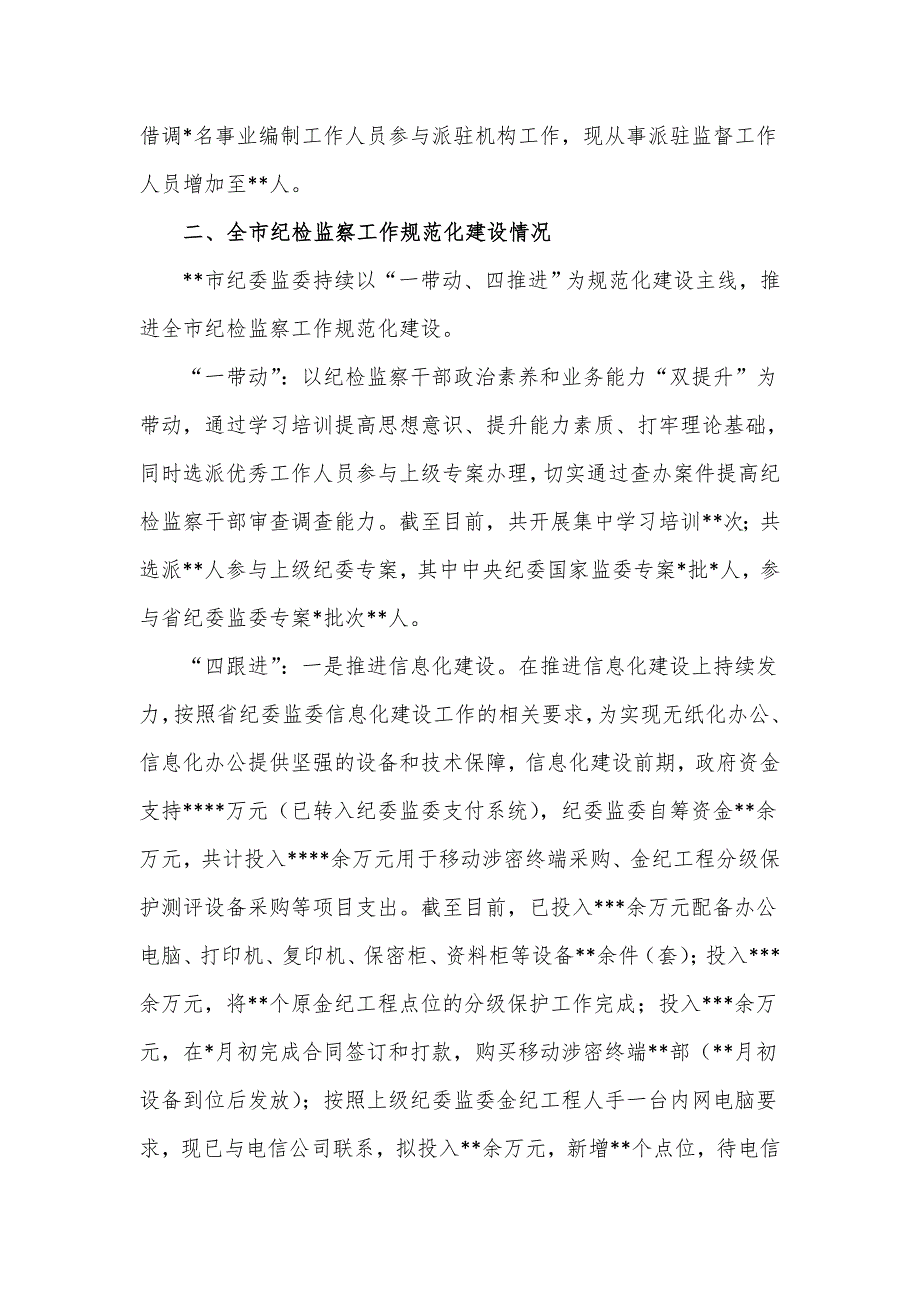 借调*名事业编制工作人员参与派驻机构工作，现从事派驻监督工作
人员增加至**人。
二、全市纪检监察工作规范化建设情况
**市纪委监委持续以“一带动、四推进”为规范化建设主线，推
进全市纪检监察工作规范化建设。
“一带动”：以纪检监察干部政治素养和业务能力“双提升”为
带动，通过学习培训提高思想意识、提升能力素质、打牢理论基础，
同时选派优秀工作人员参与上级专案办理，切实通过查办案件提高纪
检监察干部审查调查能力。截至目前，共开展集中学习培训**次；共
选派**人参与上级纪委专案，其中中央纪委国家监委专案*批*人，参
与省纪委监委专案*批次**人。
“四跟进”：一是推进信息化建设。在推进信息化建设上持续发
力，按照省纪委监委信息化建设工作的相关要求，为实现无纸化办公、
信息化办公提供坚强的设备和技术保障，信息化建设前期，政府资金
支持****万元（已转入纪委监委支付系统），纪委监委自筹资金**余
万元，共计投入****余万元用于移动涉密终端采购、金纪工程分级保
护测评设备采购等项目支出。截至目前，已投入***余万元配备办公
电脑、打印机、复印机、保密柜、资料柜等设备**余件（套）；投入***
余万元，将**个原金纪工程点位的分级保护工作完成；投入***余万
元，在*月初完成合同签订和打款，购买移动涉密终端**部（**月初
设备到位后发放）；按照上级纪委监委金纪工程人手一台内网电脑要
求，现已与电信公司联系，拟投入**余万元，新增**个点位，待电信